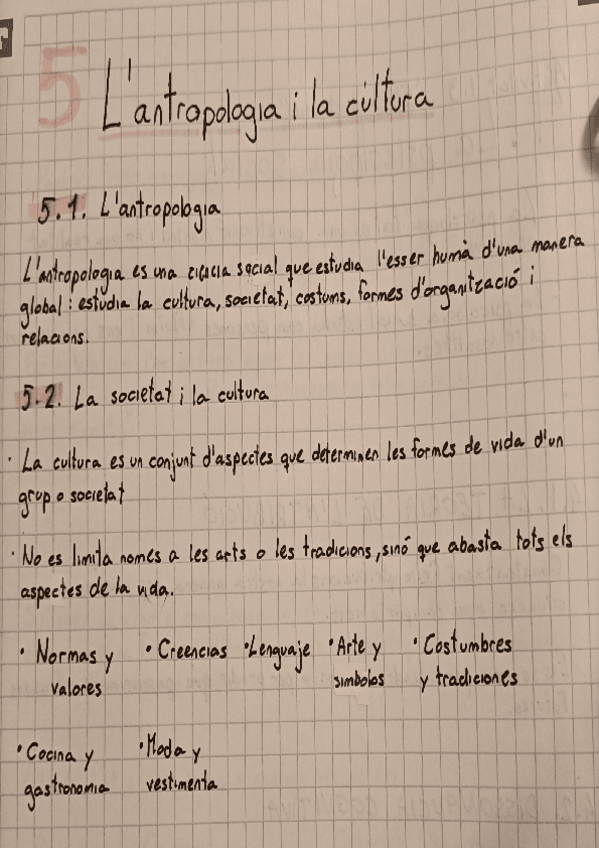 5 L'antropologia i la cultura
5.1. L'antropologia
L'antropologia es una ciència social que estudia l'esser humà d'una manera
global: estudia la cultura, societat, costums, formes d'organització i
relacions.
5.2. La societat i la cultura
· La cultura es un conjunt d'aspectes que determinen les formes de vida d'un
grup o societat
· No es limita nomes a les arts o les tradicions, sinó que abasta tots els
aspectes de la vida.
· Normas y · Creencias · Lenguaje · Arte y · Costumbres
valores simbolos y tradiciones
· Cocina y · Moda y
gastronomia vestimenta